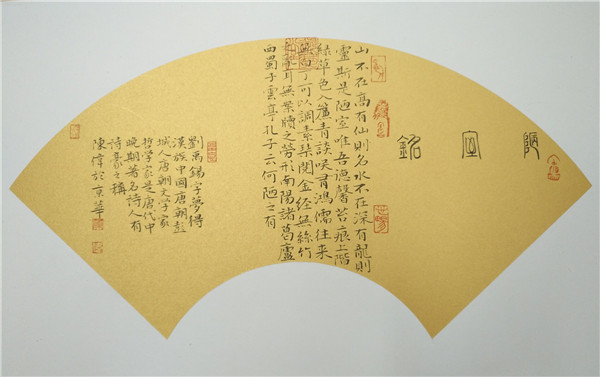 陋室銘
山不在高有仙則名水不在深有龍則
靈斯是陋室唯吾德馨苔痕上階
綠草色入簾青談笑有鴻儒往來
無白丁可以調素琴閱金經無絲竹
之亂耳無案牘之勞形南陽諸葛廬
西蜀子雲亭孔子云何陋之有
劉禹錫字夢得
漢族中國唐朝彭
城人唐朝文學家
哲學家是唐代中
晚期著名詩人有
詩豪之稱
陳偉於京華